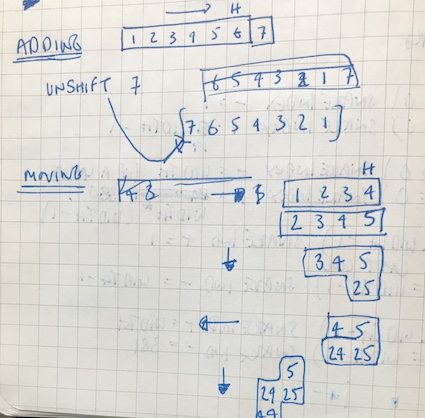 H
ADDING 1 2 3 4 5 6 7
UNSHIFT 7 6 5 4 3 2 1 7
7 6 5 4 3 2 1
MOVING H
1 2 3 4
2 3 4 5
3 4 5
25
4 5
24 25
5
24 25
44